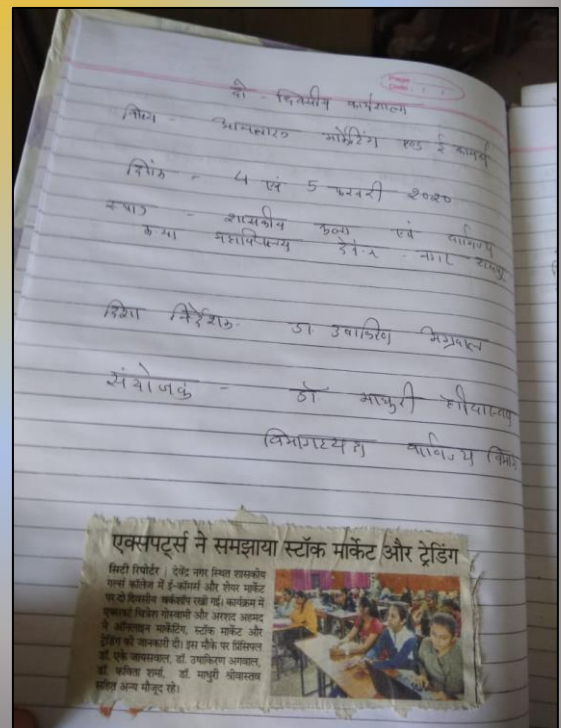 Page
Date
दो - दिवसीय कार्यशाला
विषय - आनलाइन मार्केटिंग एण्ड ई कामर्स
दिनांक - 4 एवं 5 फरवरी 2020
स्थान - शासकीय कला एवं वाणिज्य
कन्या महाविद्यालय देवेन्द्र नगर रायपुर
दिशा निर्देशक - डा. उषाकिरण अग्रवाल
संयोजक - डॉ माधुरी श्रीवास्तव
विभागाध्यक्ष वाणिज्य विभाग
एक्सपर्ट्स ने समझाया स्टॉक मार्केट और ट्रेडिंग
सिटी रिपोर्टर | देवेंद्र नगर स्थित शासकीय
गर्ल्स कॉलेज में ई-कॉमर्स और शेयर मार्केट
पर दो दिवसीय वर्कशॉप रखी गई। कार्यक्रम में
एक्सपर्ट गोस्वामी और अरशद अहमद
ने ऑनलाइन मार्केटिंग, स्टॉक मार्केट और
ट्रेडिंग की जानकारी दी। इस मौके पर प्रिंसिपल
डॉ. एके जायसवाल, डॉ. उषाकिरण अग्रवाल,
डॉ. कविता शर्मा, डॉ. माधुरी श्रीवास्तव
सहित अन्य मौजूद रहे।